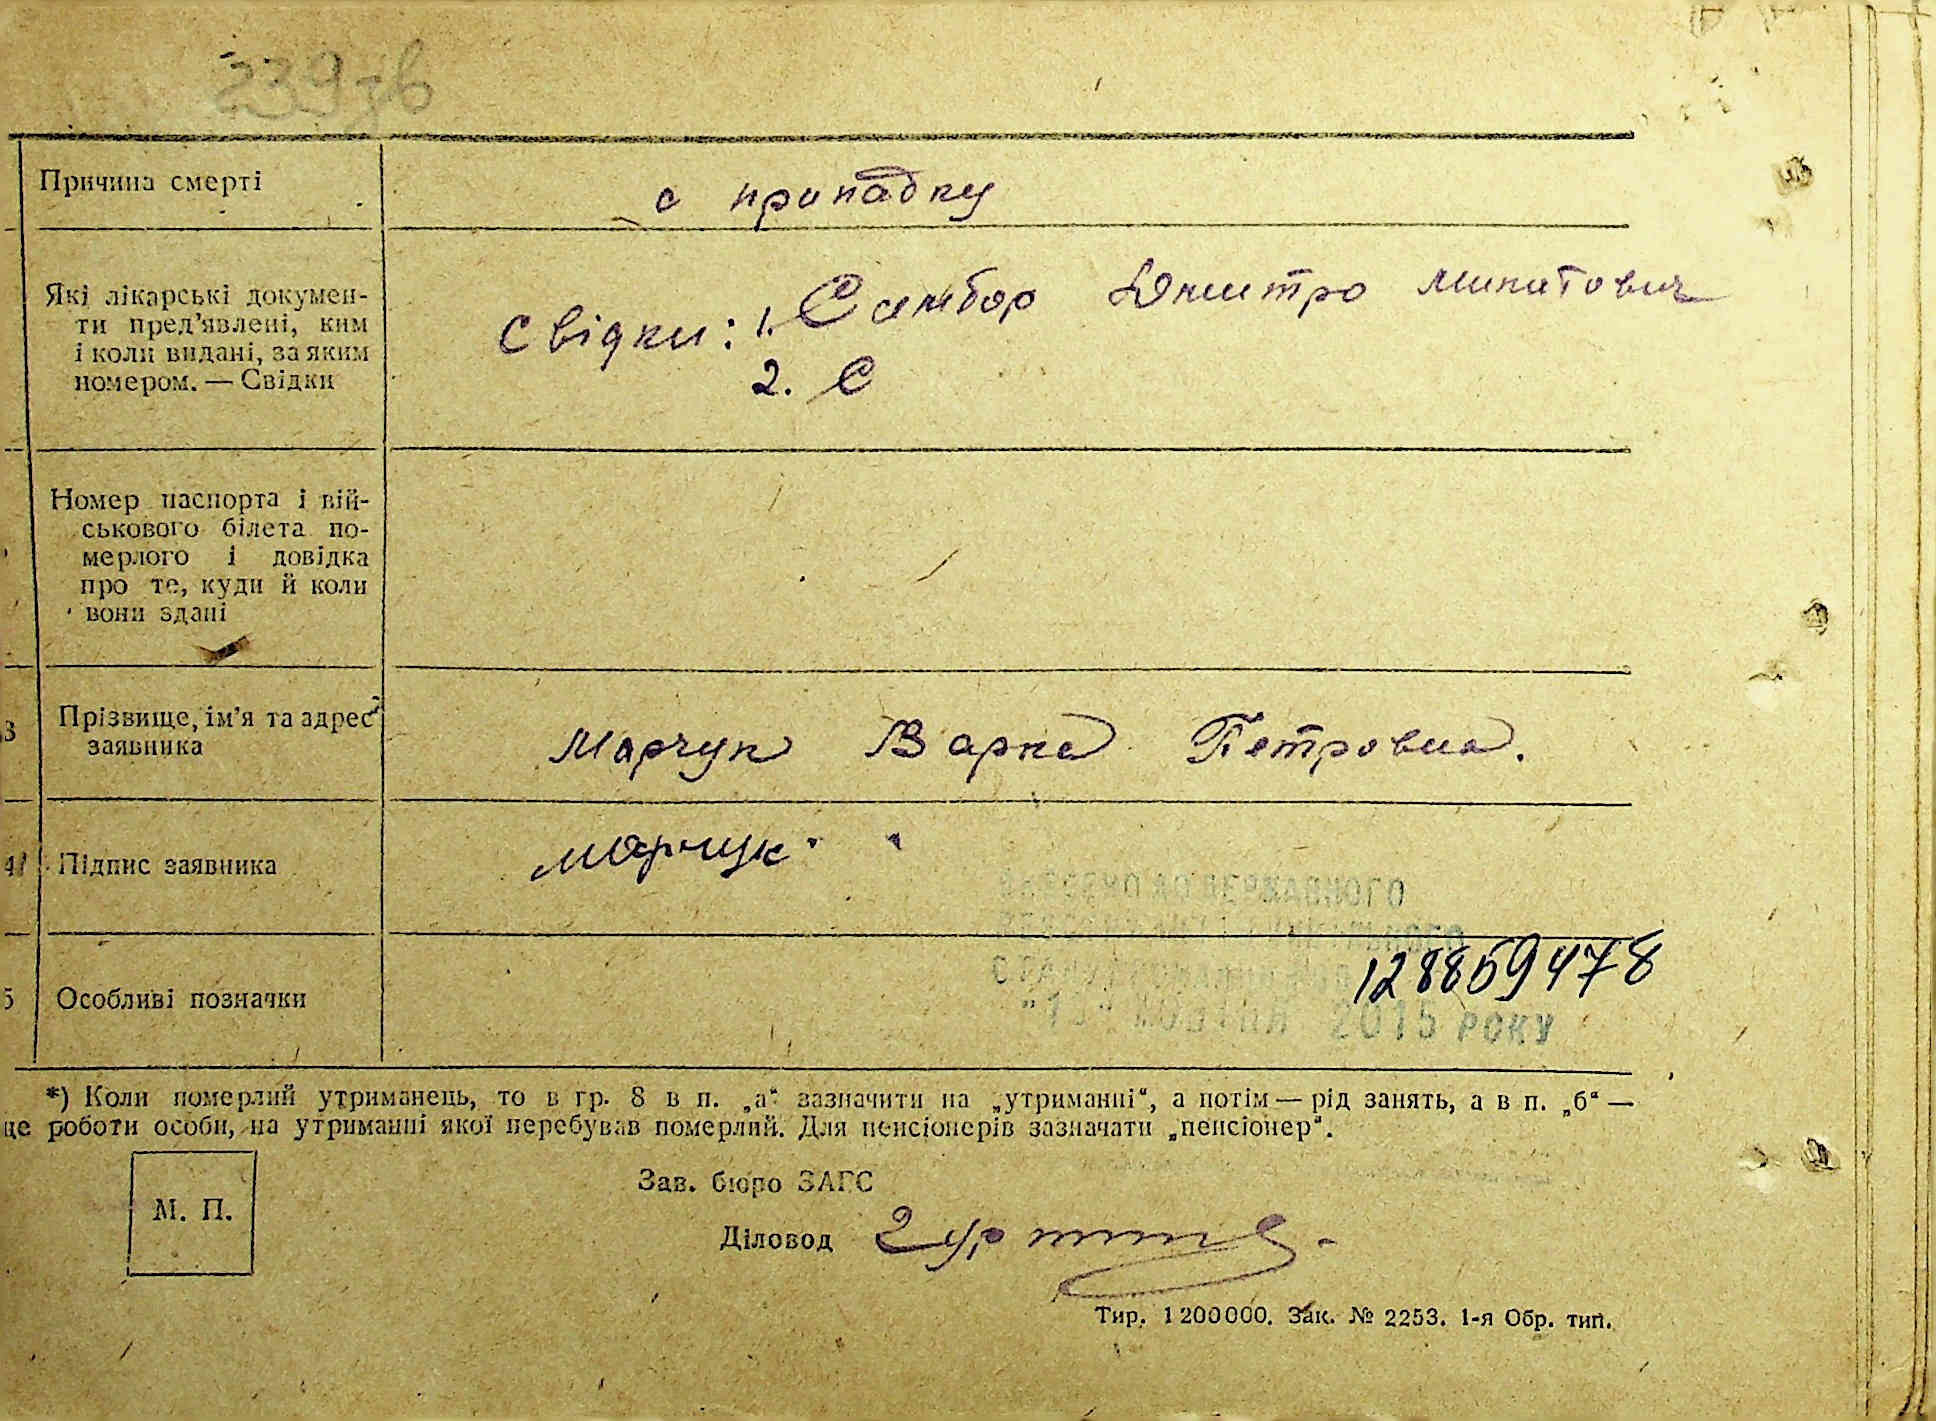 239зв
Причина смерті
с припадку
Які лікарські докумен-
ти пред'явлені, ким
і коли видані, за яким
номером. — Свідки
Свідки: 1. Самбор Дмитро
2. С
Номер паспорта і вій-
ськового білета по-
мерлого і довідка
про те, куди й коли
вони здані
3 Прізвище, ім'я та адрес
заявника
Марчук Варка Петровна.
4 Підпис заявника
Марчук
ДО ДЕРЖАВНОГО
128859478
5 Особливі позначки
2015 РОКУ
*) Коли померлий утриманець, то в гр. 8 в п. „а“ зазначити на „утриманні“, а потім — рід занять, а в п. „б“ —
це роботи особи, на утриманні якої перебував померлий. Для пенсіонерів зазначати „пенсіонер“.
М. П.
Зав. бюро ЗАГС
Діловод
Тир. 1200000. Зак. № 2253. 1-я Обр. тип.